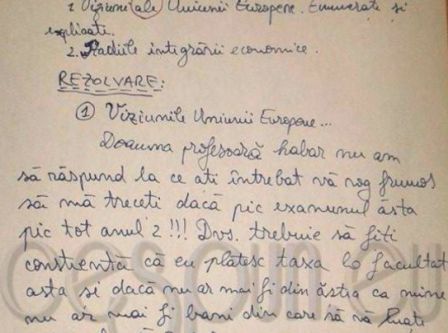 1. Viziuni(le) ale Uniunii Europene. Enumerati si
explicati.
2. Stadiile integrării economice.
REZOLVARE:
① Viziunile Uniunii Europene...
Doamna profesoară habar nu am
să răspund la ce ati întrebat vă rog frumos
să mă treceti dacă pic examenul ăsta
pic tot anul 2!!! Dvs. trebuie să fiti
constientă că eu plătesc taxa la facultat
asta si dacă nu ar mai fi din ăstia ca mine
nu ar mai fi bani din care să vă luati